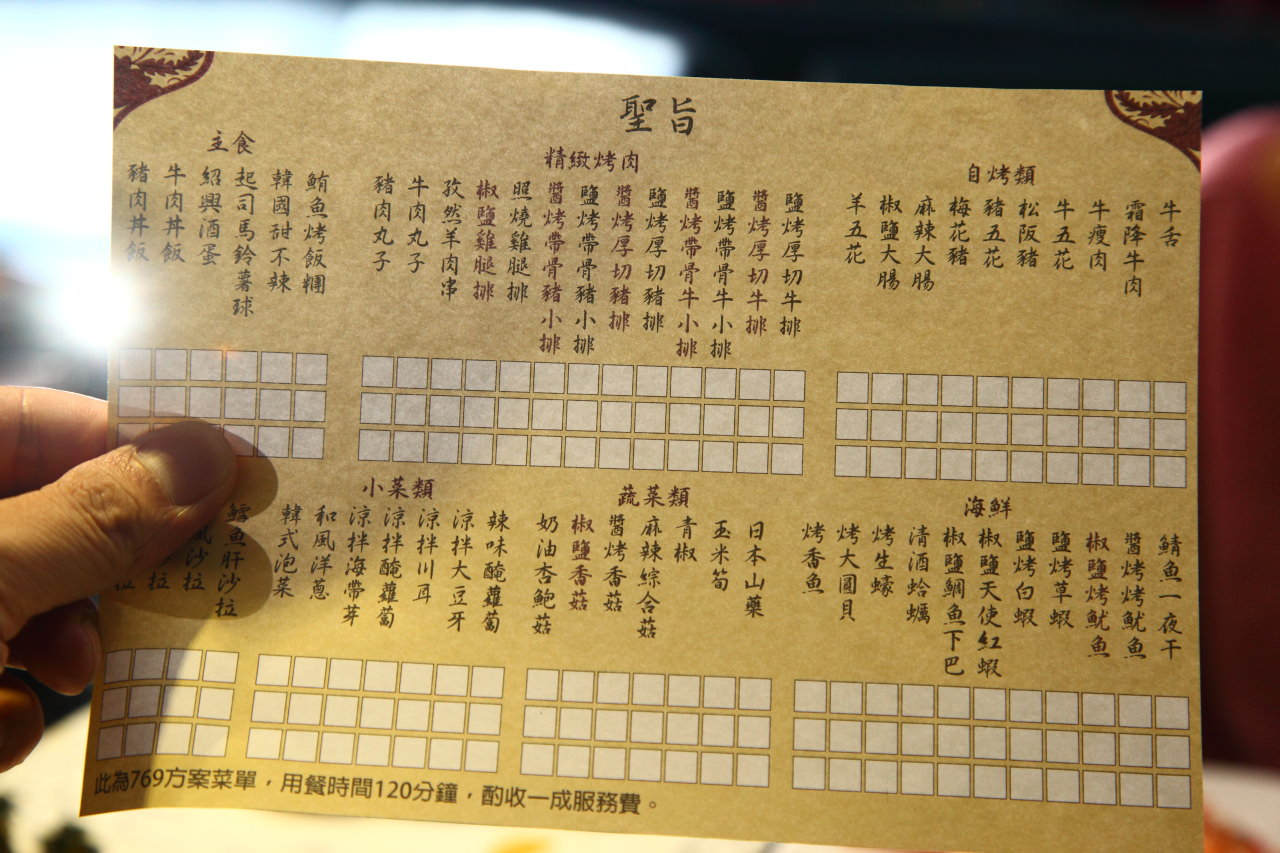 聖旨
自烤類
牛舌
霜降牛肉
牛瘦肉
牛五花
松阪豬
豬五花
梅花豬
麻辣大腸
椒鹽大腸
羊五花
精緻烤肉
鹽烤厚切牛排
醬烤厚切牛排
鹽烤帶骨牛小排
醬烤帶骨牛小排
鹽烤厚切豬排
醬烤厚切豬排
鹽烤帶骨豬小排
醬烤帶骨豬小排
照燒雞腿排
椒鹽雞腿排
孜然羊肉串
牛肉丸子
豬肉丸子
主食
鮪魚烤飯糰
韓國甜不辣
起司馬鈴薯球
紹興酒蛋
牛肉丼飯
豬肉丼飯
海鮮
鯖魚一夜干
醬烤烤魷魚
椒鹽烤魷魚
鹽烤草蝦
鹽烤白蝦
椒鹽天使紅蝦
椒鹽鯛魚下巴
清酒蛤蠣
烤生蠔
烤大圓貝
烤香魚
蔬菜類
日本山藥
玉米筍
青椒
麻辣綜合菇
醬烤香菇
椒鹽香菇
奶油杏鮑菇
小菜類
辣味醃蘿蔔
涼拌大豆牙
涼拌川耳
涼拌醃蘿蔔
涼拌海帶芽
和風洋蔥
韓式泡菜
鱈魚肝沙拉
風沙拉
拉
拉
此為769方案菜單，用餐時間120分鐘，酌收一成服務費。